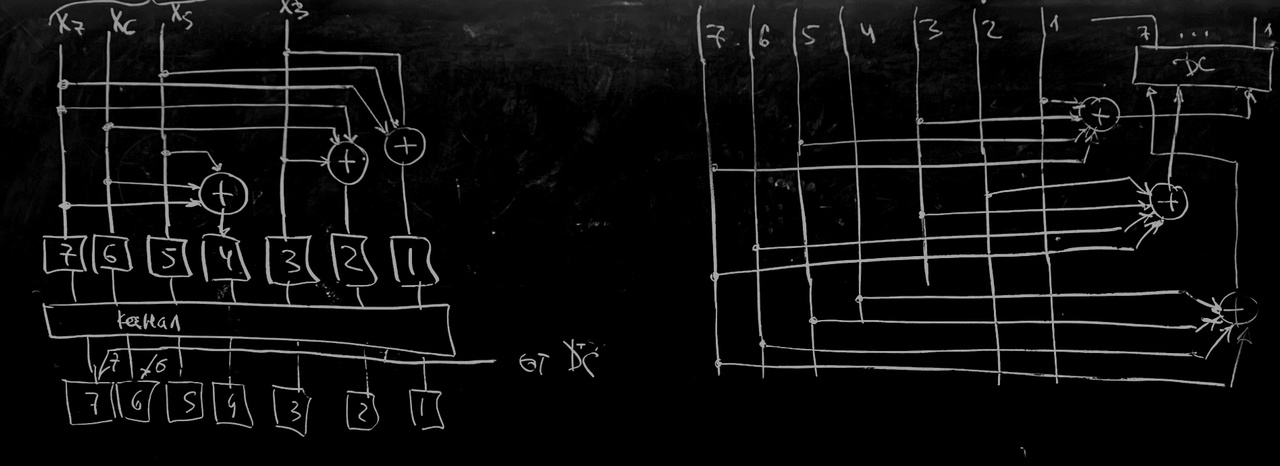 X7 X6 X5 X3
+ + +
7 6 5 4 3 2 1
Канал
7 6
от DC
7 6 5 4 3 2 1
7 6 5 4 3 2 1
7 ... 1
DC
+
+
+